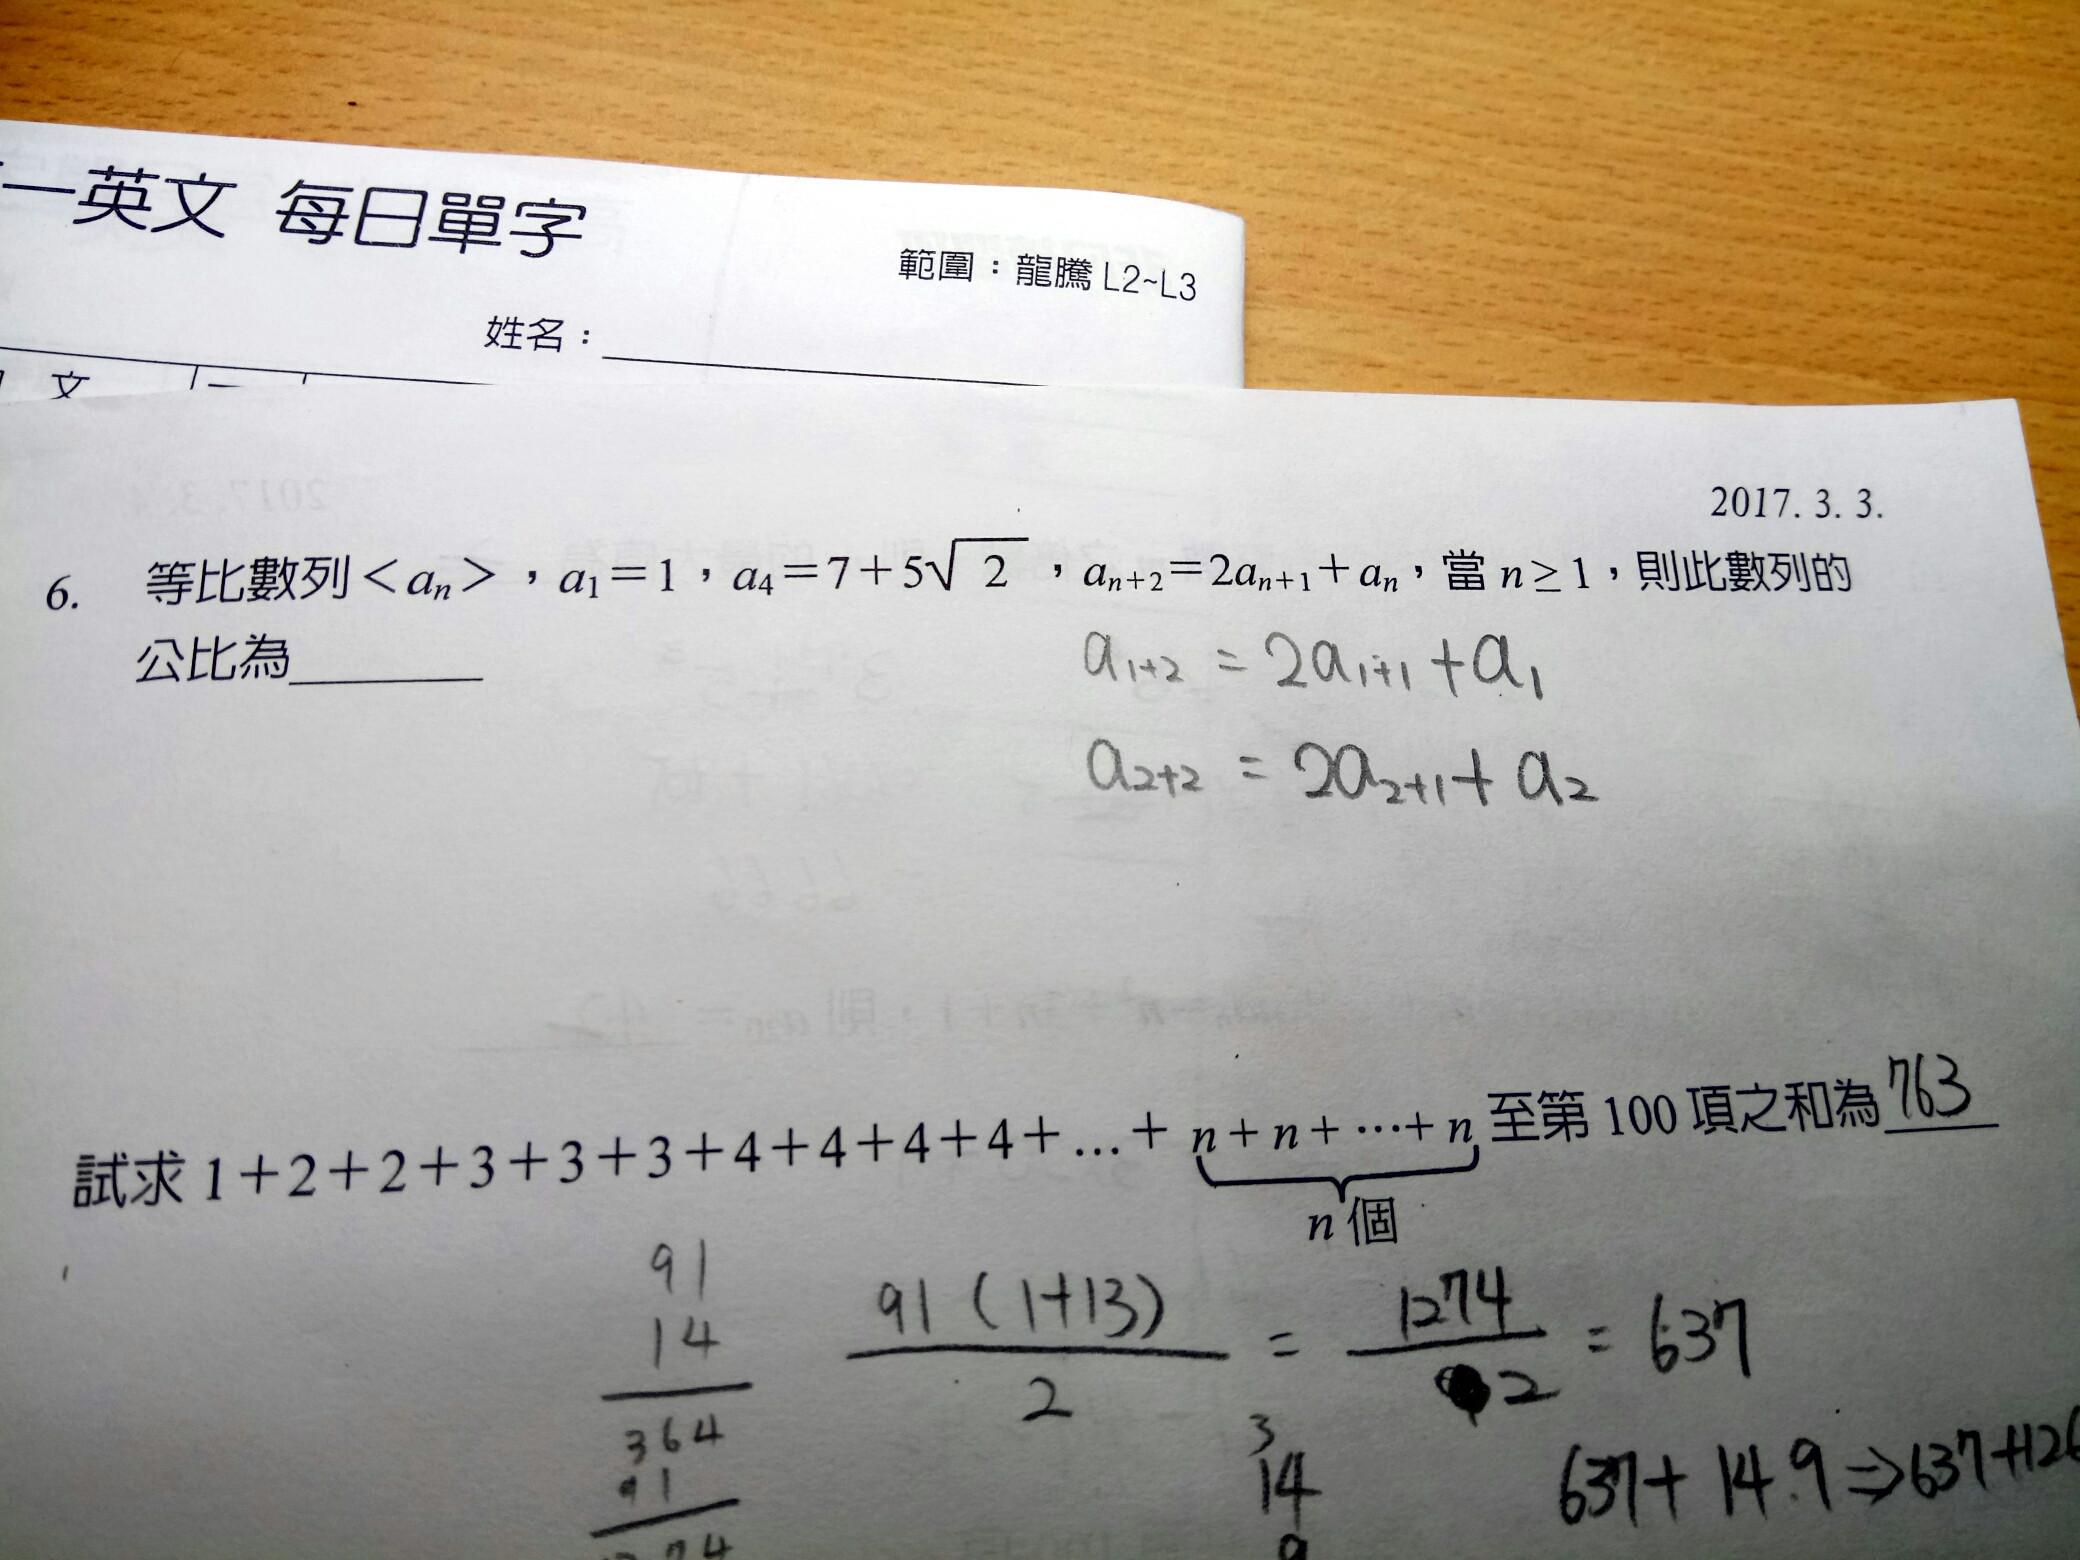 一英文 每日單字
範圍：龍騰 L2~L3
姓名：
文
2017. 3. 3.
6. 等比數列＜aₙ＞，a₁＝1，a₄＝7＋5√2，aₙ₊₂＝2aₙ₊₁＋aₙ，當 n≥1，則此數列的
公比為
a₁₊₂ = 2a₁₊₁ + a₁
a₂₊₂ = 2a₂₊₁ + a₂
試求 1＋2＋2＋3＋3＋3＋4＋4＋4＋4＋…＋ n＋n＋…＋n 至第 100 項之和為 763
n 個
91
14
364
91
91 (1+13)
2
= 1274
2
= 637
3
14
9
637 + 14.9 ⇒ 637+126